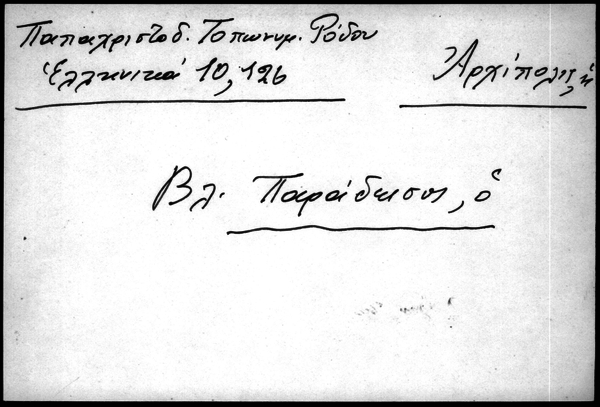 Παπαχριστοδ. Τοπωνυμ. Ρόδου
Ἑλληνικά 10, 126
Ἀρχίπολις, ἡ
Βλ. Παράδεισος, ὁ